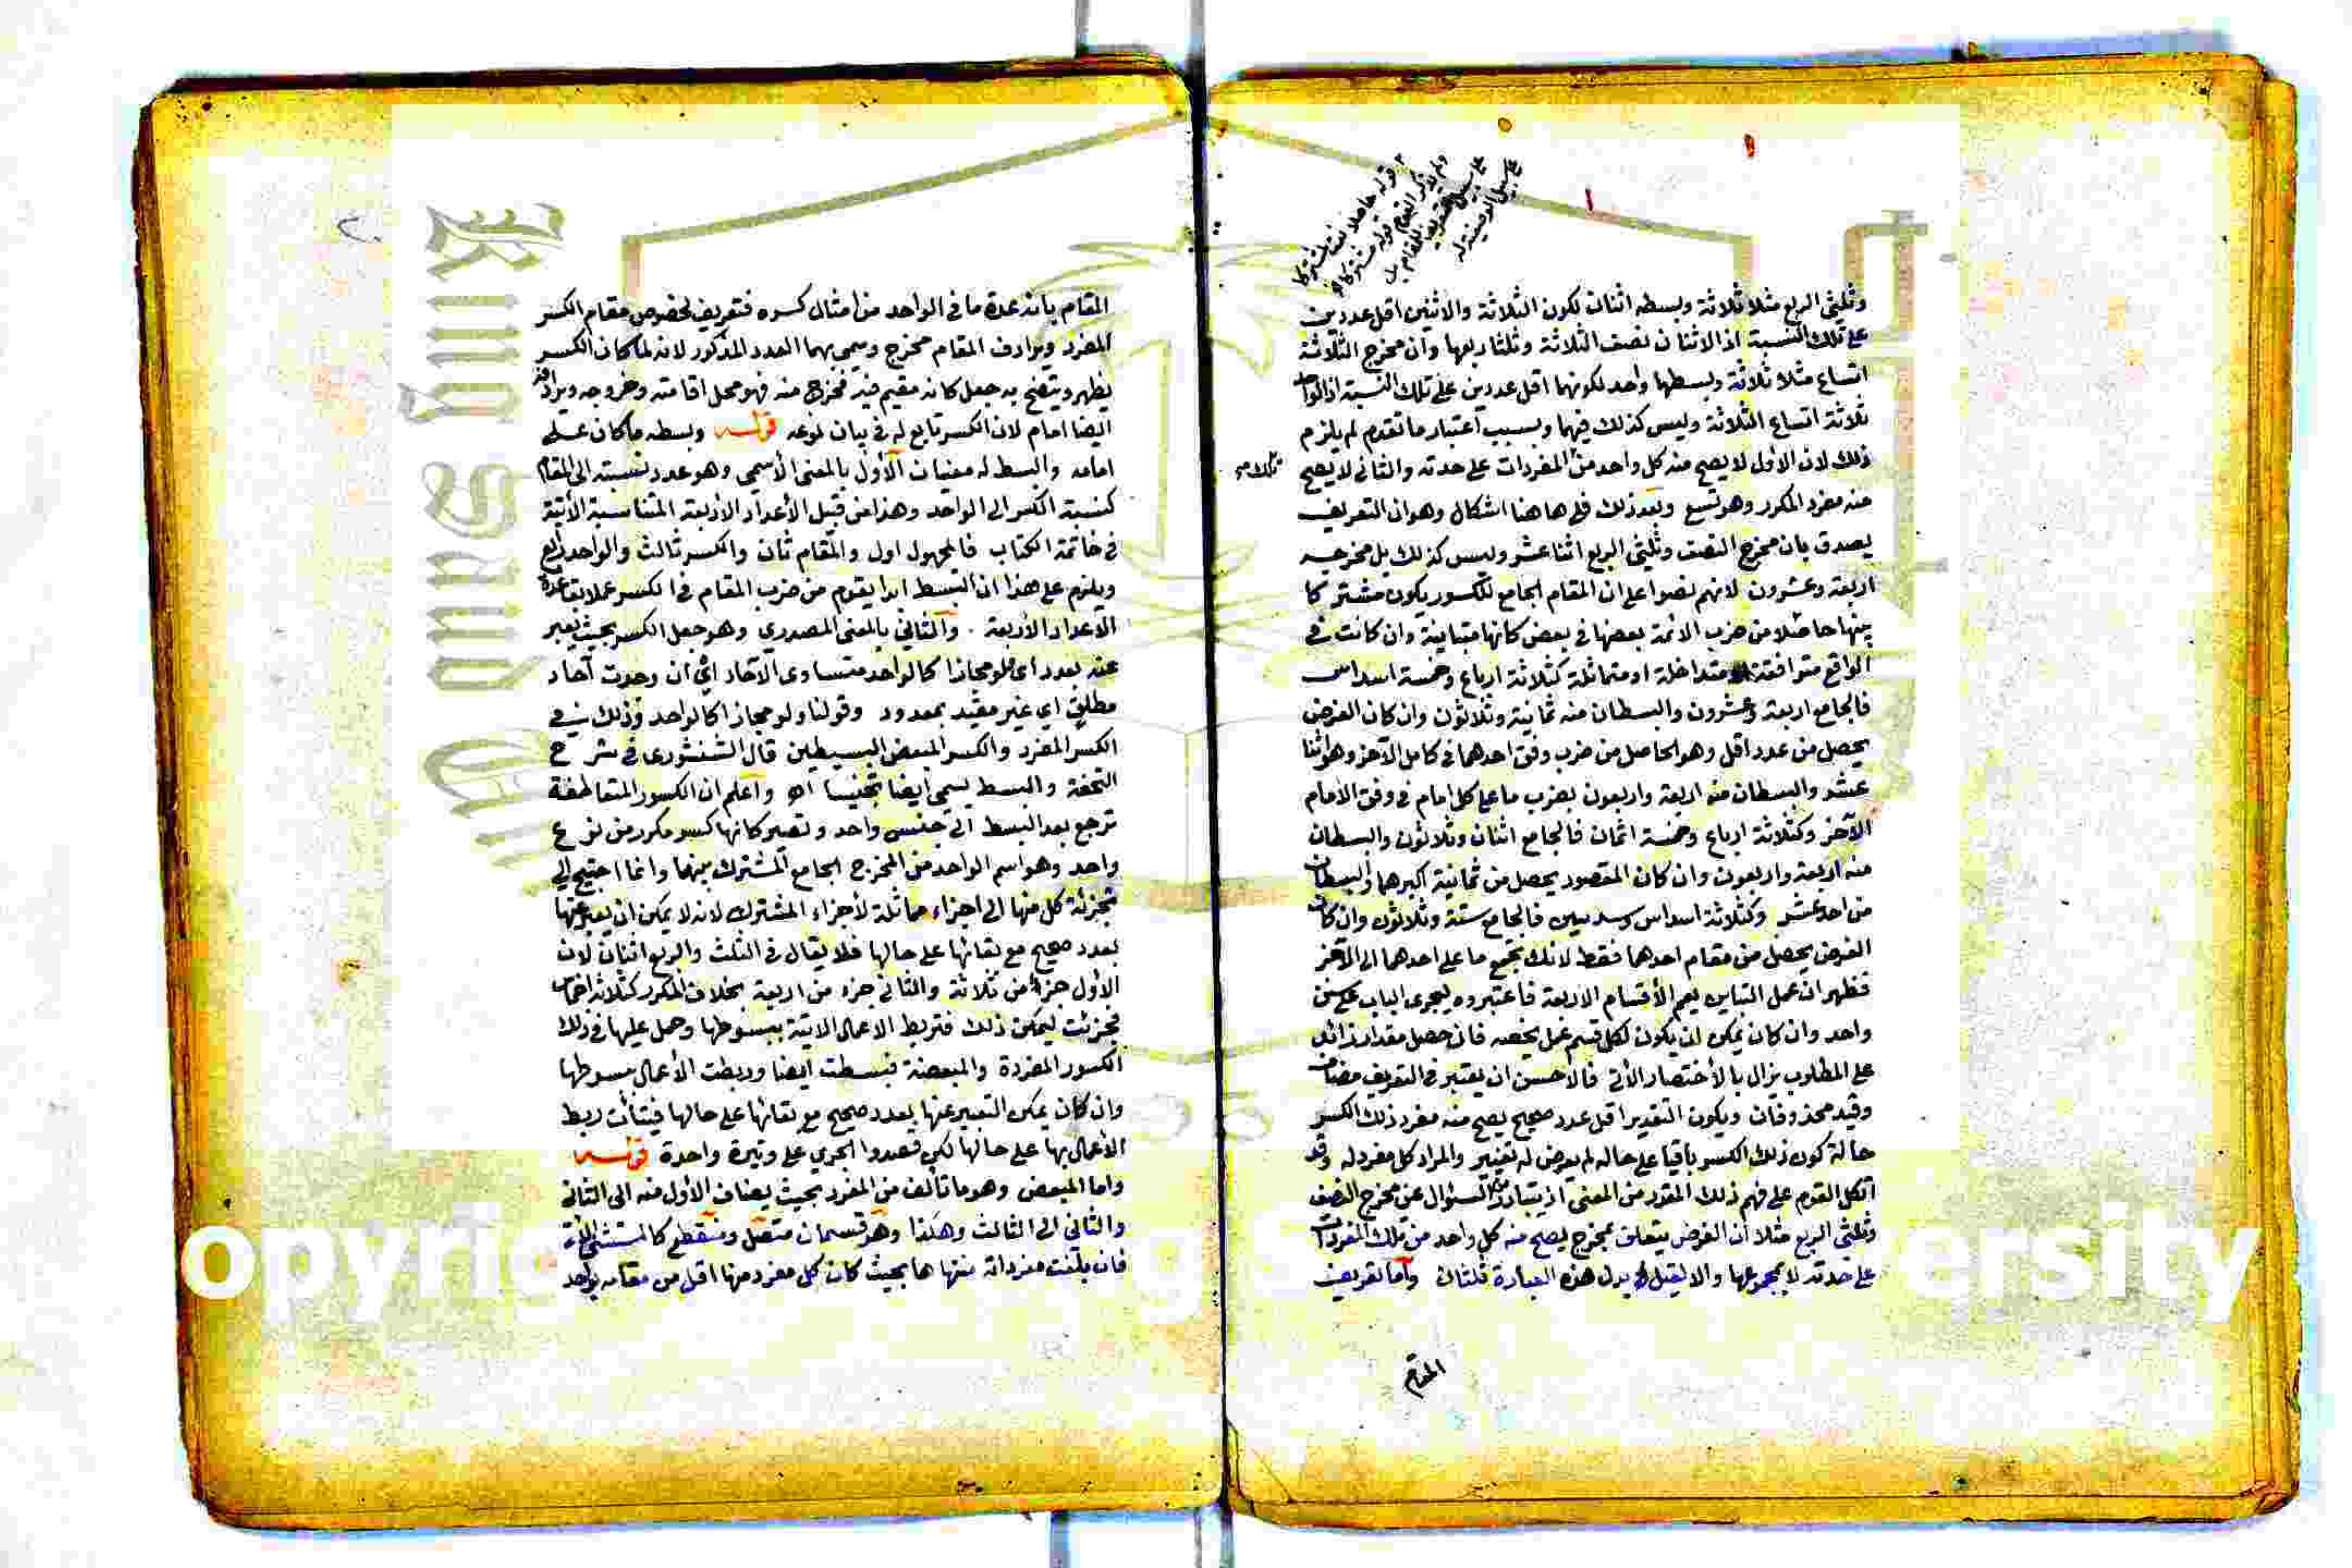 وثلثي الربع مثلا ثلاثة وبسطه اثنان لكون الثلاثة والاثنين اقل عددين
على تلك النسبة اذ الاثنان نصف الثلاثة وثلثا ربعها وان مخرج الثلاثة
اتساع مثلا ثلاثة وبسطها واحد لكونهما اقل عددين على تلك النسبة اذ الواحد
ثلاثة اتساع الثلاثة وليس كذلك فيهما وبسبب اعتبار ما تقدم لم يلزم
ذلك لان الأول لا يصح منه كل واحد من المفردات على حدته والثاني لا يصح
منه مفرد المكرر وهو تسع وبعد ذلك فلي هاهنا اشكال وهو ان التعريف
يصدق بان مخرج النصف وثلثي الربع اثنا عشر وليس كذلك بل مخرجه
اربعة وعشرون لانهم نصوا على ان المقام الجامع للكسور يكون مشتركا
بينها حاصلا من ضرب الائمة بعضها في بعض كانها متباينة وان كانت في
الواقع متوافقة متداخلة او متماثلة كثلاثة ارباع وخمسة اسداس
فالجامع اربعة وعشرون والبسطان منه ثمانية وثلاثون وان كان الغرض
يحصل من عدد اقل وهو الحاصل من ضرب وفق احدهما في كامل الآخر وهو اثنا
عشر والبسطان منه اربعة واربعون بضرب ما على كل امام في وفق الامام
الآخر وكثلاثة ارباع وخمسة اثمان فالجامع اثنان وثلاثون والبسطان
منه اربعة واربعون وان كان المقصود يحصل من ثمانية اكبرهما والبسطان
من احد عشر وكثلاثة اسداس وسدسين فالجامع ستة وثلاثون وان كان
الغرض يحصل من مقام احدهما فقط لانك تجمع ما على احدهما الى الآخر
فظهر ان عمل التباين يعم الأقسام الاربعة فاعتبروه ليجرى الباب على سنن
واحد وان كان يمكن ان يكون لكل قسم عمل يخصه فان حصل مقدار زائد
على المطلوب يزال بالأختصار الأتي فالاحسن ان يعتبر في التعريف مضاف
وقيد محذوفان ويكون التقدير اقل عدد صحيح يصح منه مفرد ذلك الكسر
حالة كون ذلك الكسر باقيا على حاله لم يعرض له تغيير والمراد كل مفرد له وقد
اتكل القوم على فهم ذلك المقدر من المعنى اذ يتبادر من السئوال عن مخرج النصف
وثلثي الربع مثلا أن الغرض يتعلق بمخرج يصح منه كل واحد من تلك المفردات
على حدته لا بمجموعها والا لقيل بدل هذه العبارة ثلثان وأما تعريف
المقام
المقام بانه عدة ما في الواحد من أمثال كسره فتعريف لخصوص مقام الكسر
المفرد ويرادف المقام مخرج وسمي بهما العدد المذكور لانه لما كان الكسر
يظهر ويتضح به جعل كانه مقيم فيه مخرج منه فهو محل اقامته وخروجه ويرادفه
ايضا امام لان الكسر تابع له في بيان نوعه قوله وبسطه ما كان على
امامه والبسط له معنيان الأول بالمعنى الأسمي وهو عدد نسبته الى المقام
كنسبة الكسر الى الواحد وهذا من قبيل الأعداد الأربعة المتناسبة الأتية
في خاتمة الكتاب فالمجهول اول والمقام ثان والكسر ثالث والواحد رابع
ويلزم على هذا ان البسط ابدا يقوم من ضرب المقام في الكسر عملا بقاعدة
الاعداد الأربعة . والثاني بالمعنى المصدري وهو جعل الكسر بحيث يعبر
عنه بعدد اى ولو مجازا كالواحد متساوى الآحاد اي ان وجدت آحاد
مطلق اي غير مقيد بمعدود وقولنا ولو مجازا كالواحد وذلك في
الكسر المفرد والكسر المبعض البسيطين قال الشنشورى في شرح
التحفة والبسط يسمى أيضا تجنيسا اه وأعلم ان الكسور المتعاطفة
ترجع بعد البسط الى جنس واحد وتصير كانها كسر مكرر من نوع
واحد وهو اسم الواحد من المخرج الجامع المشترك بينها وانما احتيج الى
تجزئة كل منها الى اجزاء مماثلة لأجزاء المشترك لانه لا يمكن ان يعبر عنها
بعدد صحيح مع بقائها على حالها فلا يقال في الثلث والربع اثنان لان
الأول جزء من ثلاثة والثاني جزء من اربعة بخلاف المكرر كثلاثة اخماس
فجزئت ليمكن ذلك فتربط الاعمال الاتية ببسوطها وحمل عليها في ذلك
الكسور المفردة والمبعضة فبسطت أيضا وربطت الأعمال ببسوطها
وان كان يمكن التعبير عنها بعدد صحيح مع بقائها على حالها فيتأتى ربط
الأعمال بها على حالها لكن قصدوا الجري على وتيرة واحدة قوله
واما المبعض وهو ما تألف من المفرد بحيث يضاف الأول منه الى الثاني
والثاني الى الثالث وهكذا وهو قسمان متصل ومنقطع كالمستثنى
فان بلغت مفرداته منتهاها بحيث كان كل مفرد منها اقل من مقامه بواحد